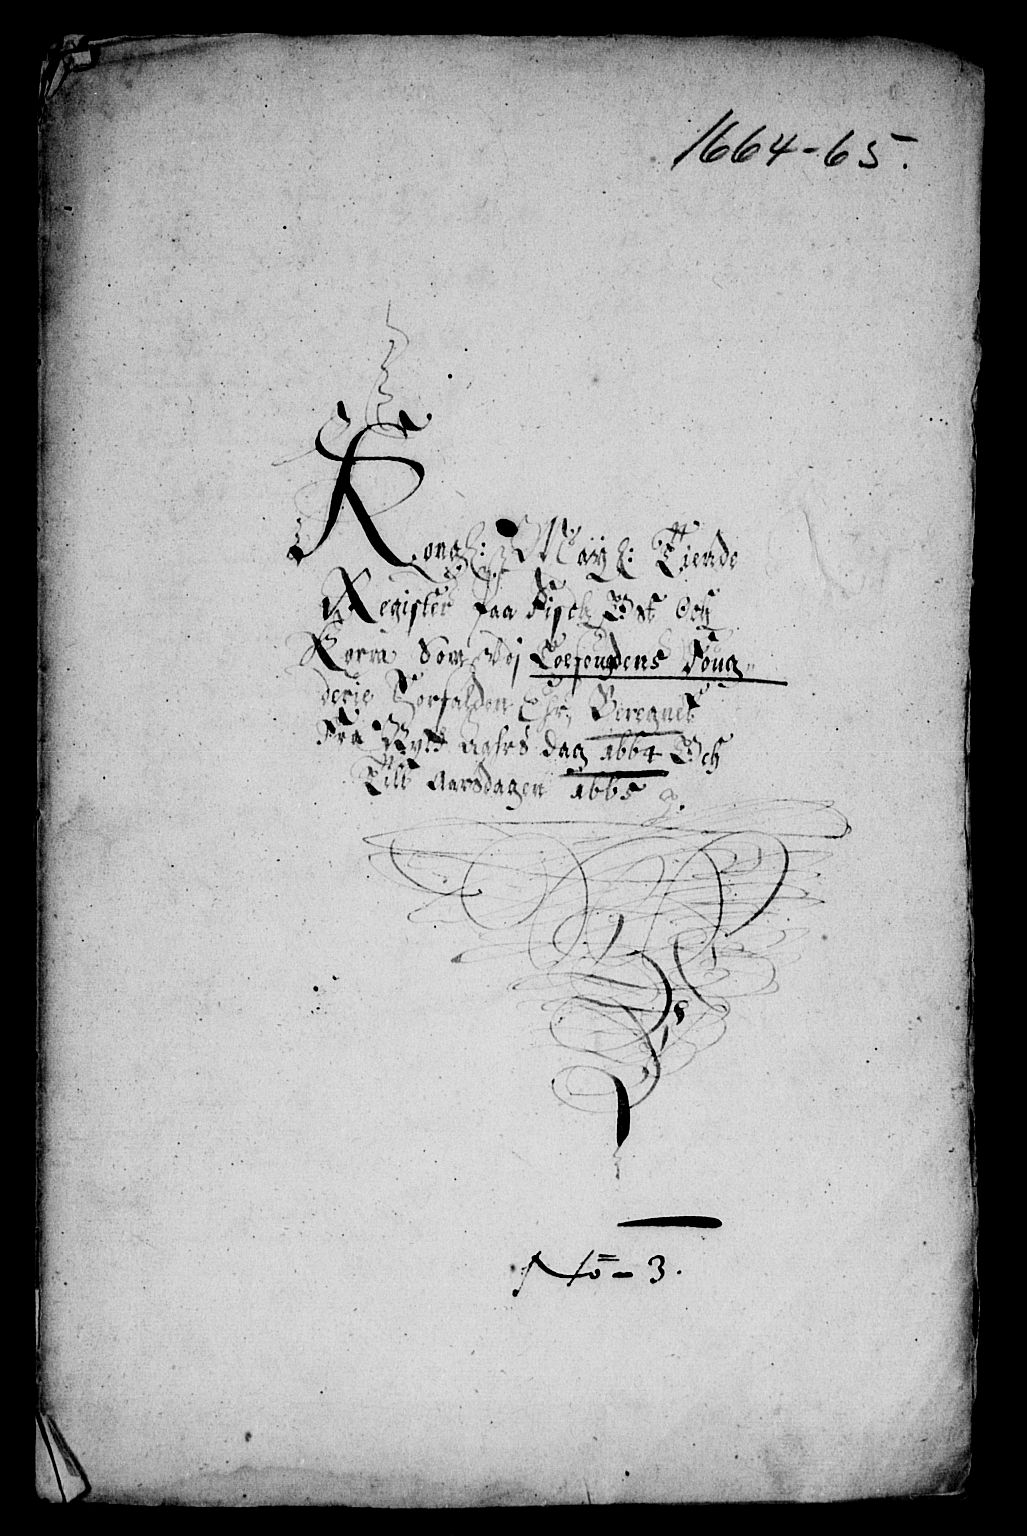 1664-65.
Kongl: Mayt: Tiende
Register paa Fisch Ost Och
Korn Som Udj Loffoudens Foug„
derie Forfalden Ehr, Beregnet
Fra Nytt Aahrs dag 1664 Och
Till Aarsdagen 1665
No - 3.